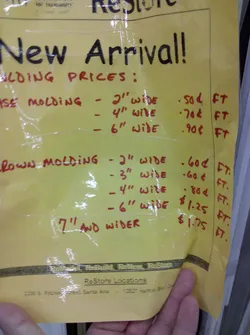 ReStore
New Arrival!
OLDING PRICES:
SE MOLDING - 2" WIDE .50¢ FT
- 4" WIDE .70¢ FT
- 6" WIDE .90¢ FT
ROWN MOLDING - 2" WIDE .60¢ FT.
- 3" WIDE .60¢ FT.
- 4" WIDE .80¢ FT.
- 6" WIDE $1.25 FT.
7" AND WIDER $1.75 FT.
ReStore Locations